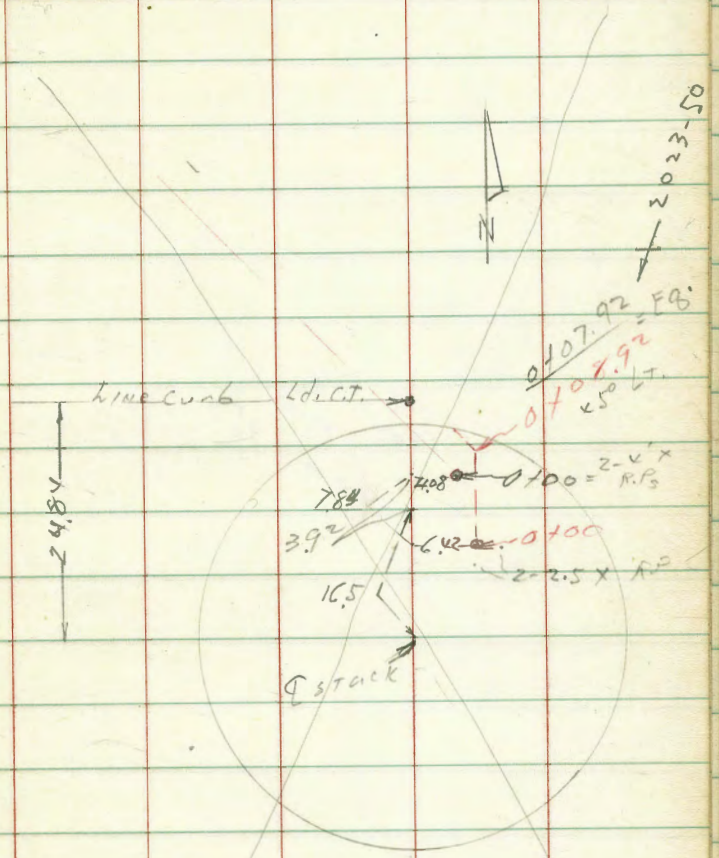 2023-50
N
0+07.92 = Eq.
0+08.92
45° LT.
Line Curb Ld. C.T.
24.84
4.08
0+00 = 2-4' x
R.P.s
7.84
3.92
6.42
0+00
2-2.5 x R.P
16.5
℄ stack